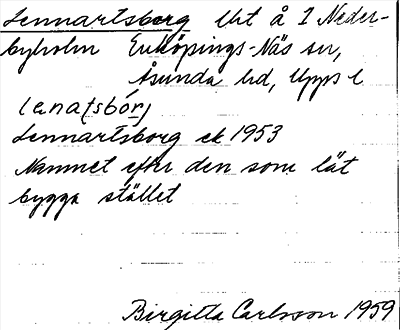 Lennartsberg Uht å 1 Neder-
byholm Enköpings-Näs sn,
Åsunda hd, Upps l
lenatsbórj
Lennartsborg ek 1953
Namnet efter den som lät
bygga stället
Birgitta Carlsson 1959